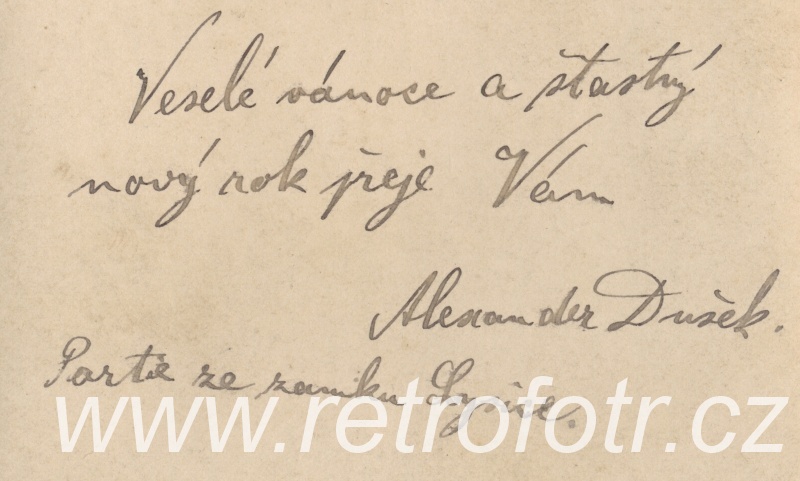 Veselé vánoce a šťastný
nový rok přeje Vám
Alexander Dušek.
Partie ze zámku Lysice.
www.retrofotr.cz